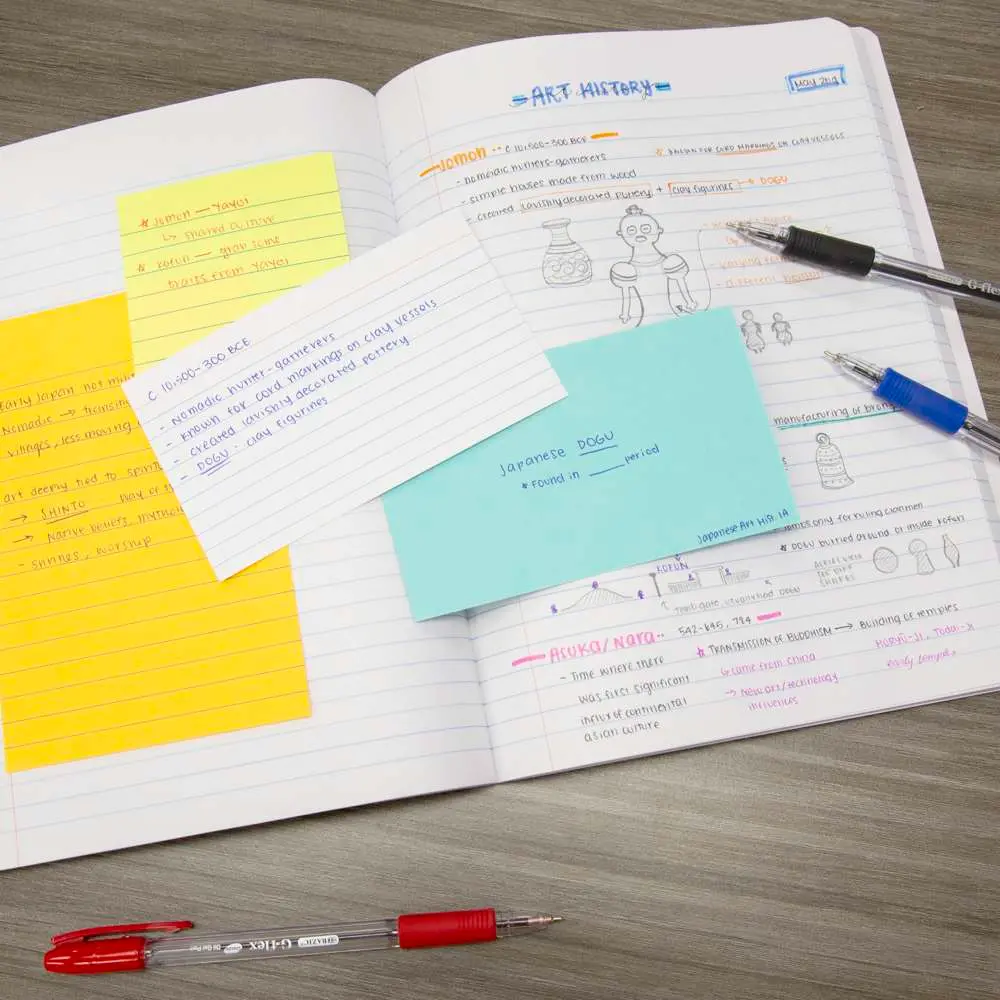 * Jomon — Yayoi
↳ shared culture
* Kofun — grab some
traits from Yayoi
Early Japan not
Nomadic →
villages, less moving
art deeply tied to
→ SHINTO way of
→ Native beliefs,
- shrines, worship
C 10,500-300 BCE
- Nomadic hunter-gatherers
- Known for cord markings on clay vessels
- created lavishly decorated pottery
- DOGU - clay figurines
Japanese DOGU
* Found in ____ period
Japanese Art Hist. 1A
ART HISTORY
May 2nd
Jomon -- C 10,500-300 BCE
* KNOWN FOR CORD MARKINGS ON CLAY VESSELS
- nomadic hunters-gatherers
- simple houses made from wood
- created lavishly decorated pottery + clay figurines → DOGU
manufacturing of
only for ruling clanmen
* DOGU buried around or inside Kofun
KOFUN
DIFF
SHAPES
ASUKA/NARA-- 542-645, 794
- Time where there
was first significant
influx of continental
asian culture
* TRANSMISSION OF BUDDHISM → Building of temples
↳ came from china
→ New art/technology
influences
HORYU-JI, Todai-Ji
early temples
BAZIC G-flex Oil Gel Pen
G-flex